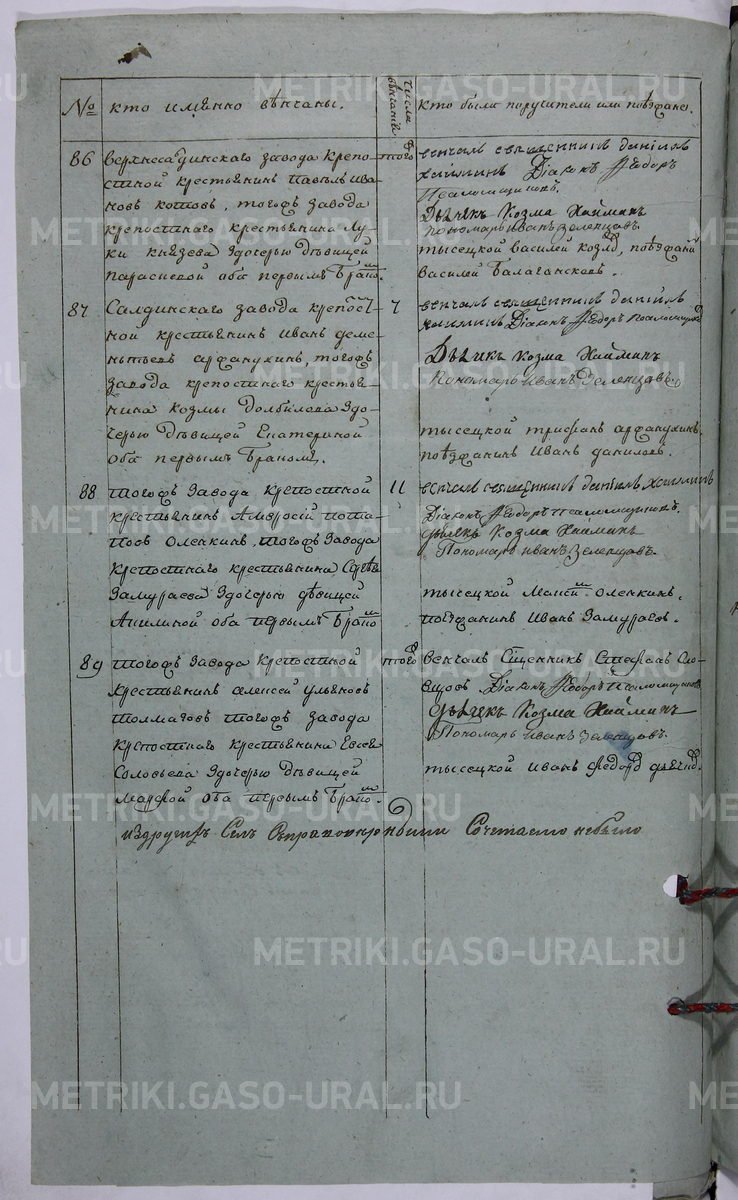 №
кто имянно вѣнчаны.
числа вѣнчаній
Кто были поручители или поѣзжане.
86
верхнесалдинскаго завода Крепо-
стной крестьянинъ павелъ Ива-
новъ котовъ, тогожъ завода
крепостнаго крестьянина Лу-
ки князева здочерью дѣвицей
параскевой оба первымъ бракомъ.
того
венчалъ священникъ даніилъ
хайминъ Діаконъ Ѳедоръ
Псаломщиковъ.
Дьячекъ Козма Хайминъ
пономарь Иванъ Зеленцовъ
тысецкой василей козлов, поѣзжанинъ
василей Балагансковъ.
87
Салдинскаго завода крепост-
ной крестьянинъ Иванъ деме-
ньтьевъ арфанухинъ, тогожъ
завода крепостнаго крестья-
нина козмы долбилова здо-
черью дѣвицей Екатериной
оба первымъ бракомъ.
7
венчалъ священникъ даніилъ
хайминъ Діаконъ Ѳедоръ Псаломщиковъ
Дьячикъ Козма Хайминъ
Пономарь Иванъ Зеленцовъ
тысецкой трифанъ арфанухинъ,
поѣзжанинъ Иванъ даниловъ.
88
тогожъ завода крепостной
крестьянинъ Амвросій пота-
повъ Оленкинъ, тогожъ завода
крепостнаго крестьянина Сергѣя
Замураева здочерью дѣвицей
Акилиной оба первымъ бракомъ
11
венчалъ священникъ даніилъ хайминъ
Діаконъ Ѳедоръ Псаломщиковъ.
дьячекъ Козма Хайминъ
Пономарь Иванъ Зеленцовъ.
тысецкой Оленкинъ,
поѣзжанинъ Иванъ Замураевъ.
89
тогожъ завода крепостной
крестьянинъ алексей ульяновъ
толмачовъ тогожъ завода
крепостнаго крестьянина Евсея
Соловьева здочерью дѣвицей
Марфой оба первымъ бракомъ.
того
венчалъ Сщенникъ Стефанъ Сло-
вцовъ Діаконъ Ѳедоръ Псаломщиковъ
Дьячекъ Козма Хайминъ
Пономарь Иванъ Зеленцовъ.
тысецкой Иванъ
издругихъ Селъ Сочетаемо небыло
METRIKI.GASO-URAL.RU